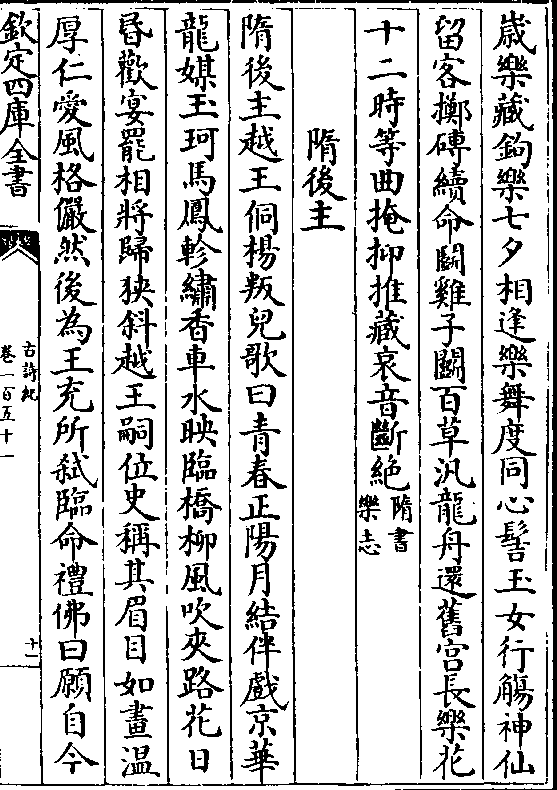 歳樂藏鉤樂七夕相逢樂舞度同心髻玉女行觴神仙
留客擲磚續命鬬雞子鬬百草汎龍舟還舊宫長樂花
十二時等曲掩抑推藏哀音斷絶隋書樂志
隋後主
隋後主越王侗楊叛兒歌曰青春正陽月結伴戲京華
龍媒玉珂馬鳳軫繡香車水映臨橋柳風吹夾路花日
昏歡宴罷相將歸狹斜越王嗣位史稱其眉目如畫温
厚仁愛風格儼然後為王充所弑臨命禮佛曰願自今
欽定四庫全書
古詩紀
卷一百五十一
十一